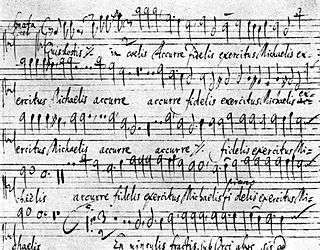 Sonata
Quis hostis ∕. in cœlis Accurre fidelis exercitus, Michaelis ex-
ercitus Michaelis accurre accurre fidelis exercitus, Michaelis ex-
ercitus, Michaelis accurre accurre ∕. fidelis exercitus, Mi-
piano
chaëlis accurre fidelis exercitus, Michaelis fidelis exercitus, Mi-
3
chaelis In vinculis fractis, sub Orci